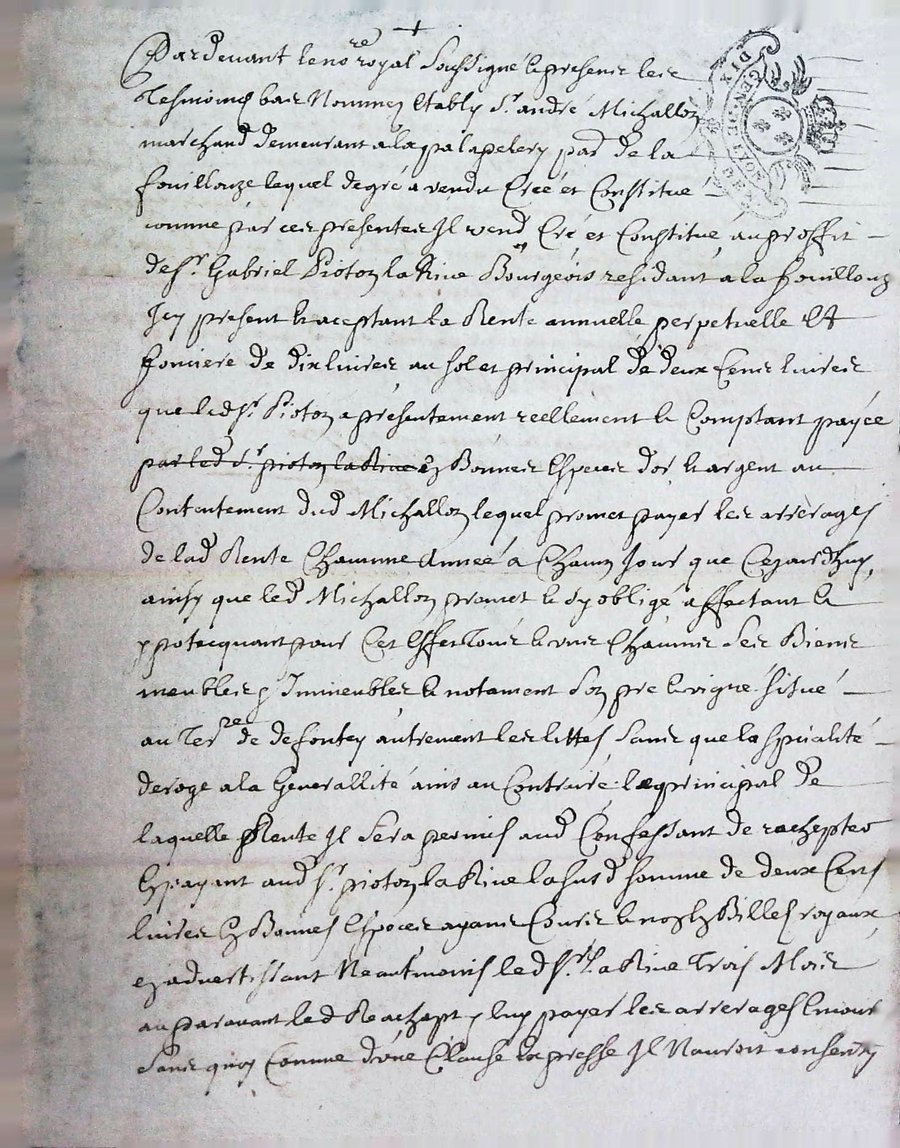 +
Pardevant le no^re royal soussigné & presens les
tesmoings bas nommez estably s^r. andré Michallon
marchand demeurant a la palapelery par^d de la
fouillouze lequel de gré a vendu creé et constitue
comme par ces presentes Il vend creé et constitué au proffit
de s^r. Gabriel Pioton la Rive Bourgeois residant a la fouillouz
Icy present & aceptant la Rente annuelle perpetuelle et
fonciere de dix livres au sol et principal de deux cens livres
que led s^r. Pioton a presentement reellement & comptant payée
par led s^r. pioton la Rive en Bonnes especes d'or & argent au
Contentement dud Michallon lequel promet payer les arrerages
de lad Rente chacunne année a chacun Jour que cejourd'huy
ainsy que led Michallon promet & sy obligé affectant &
ypotecquant pour cet effet tous & uns chacuns ses Biens
meubles & Immeubles & notament son pre & vigne situé
au ter^re de defontey autrement les littes sans que la spécialité
deroge a la generallité ains au contraire le principal de
laquelle Rente Il sera permis aud Confessant de rachepter
En payant aud s^r. pioton la Rive la susd somme de deux cens
livres en Bonnes especes ayans cours & non en Billes royaux
en advertissant neantmoins led s^r. la Rive trois Mois
auparavant led Rachapt & luy payer les arrerages encour
sans quoy comme d'une clause expresse Il n'auroit consenty
DIX DEN.
GEN. DE LYON